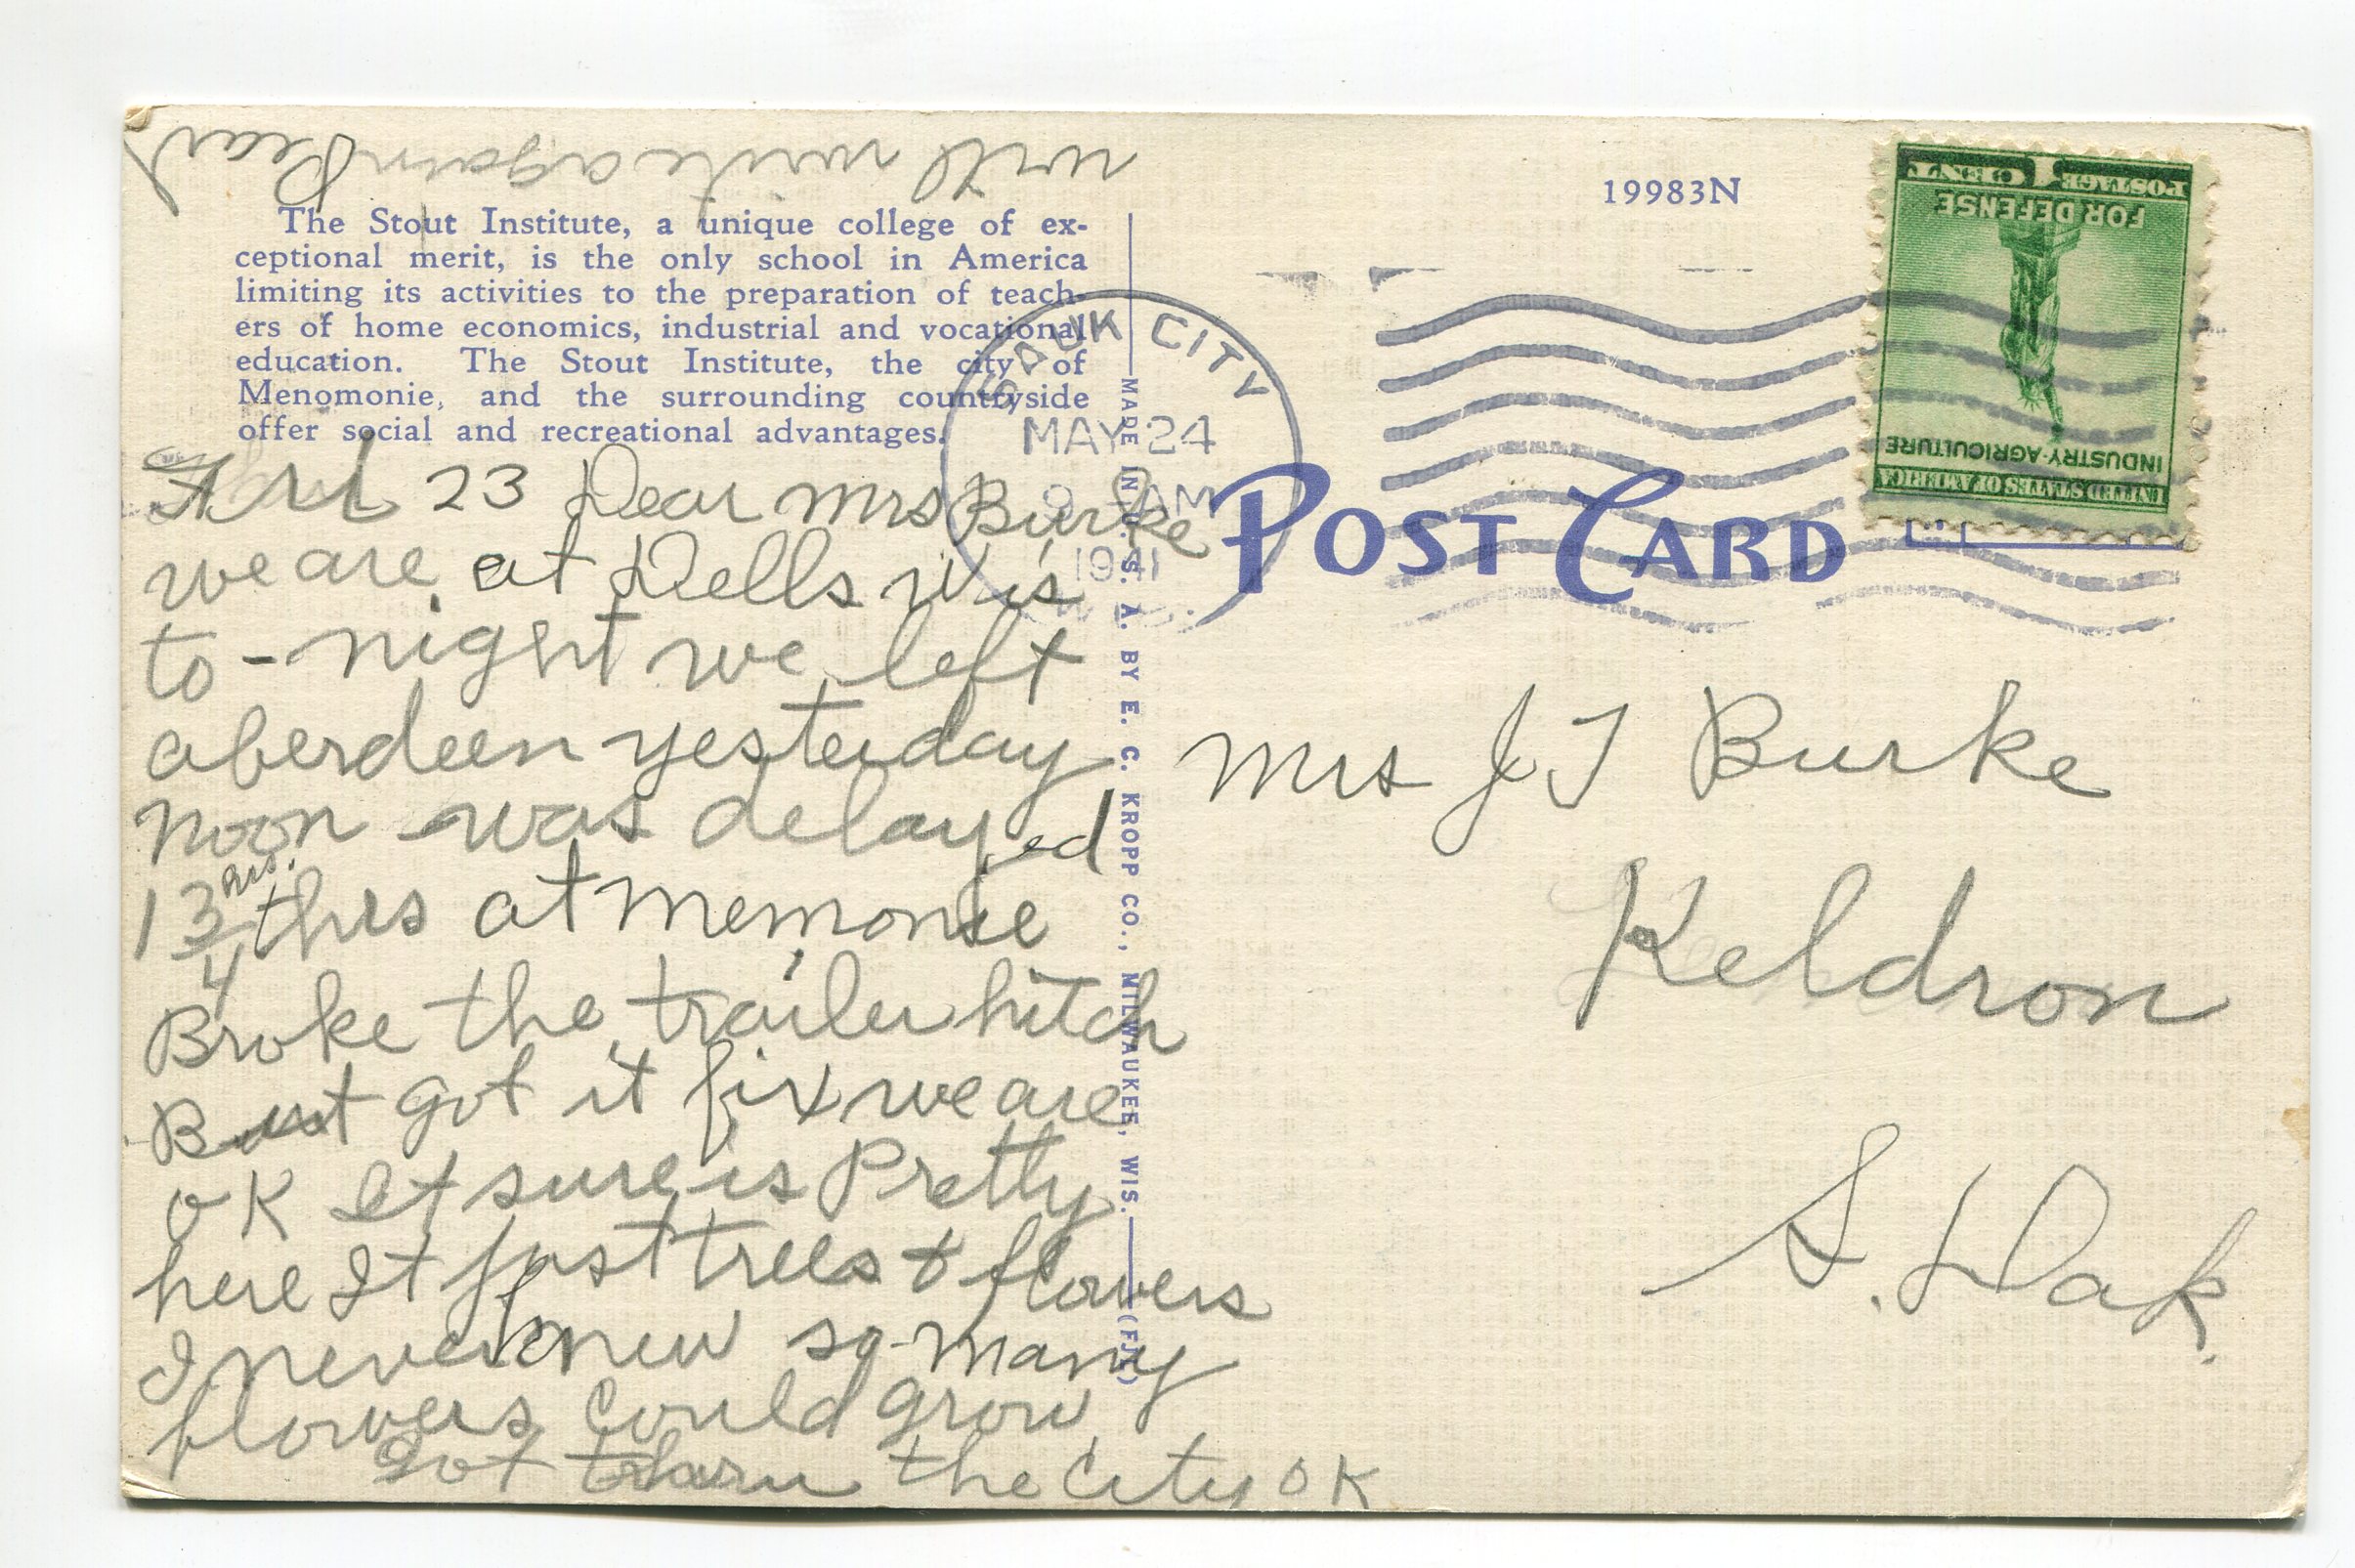 will write again Pearl
The Stout Institute, a unique college of ex-
ceptional merit, is the only school in America
limiting its activities to the preparation of teach-
ers of home economics, industrial and vocational
education. The Stout Institute, the city of
Menomonie, and the surrounding countryside
offer social and recreational advantages.
23 Dear Mrs Burke
we are at Dells Wis
to-night we left
aberdeen yesterday
noon was delayed
1 3/4 hrs. thrs at Memonie
Broke the trailer hitch
But got it fix we are
OK It sure is Pretty
here It just trees & flowers
I never knew so many
flowers could grow
Got the City OK
19983N
1 CENT 1 POSTAGE
FOR DEFENSE
INDUSTRY·AGRICULTURE
UNITED STATES OF AMERICA
SAUK CITY
MAY 24
9 AM
1941
WIS.
POST CARD
MADE IN U. S. A. BY E. C. KROPP CO., MILWAUKEE, WIS.
Mrs J T Burke
Keldron
S. Dak.